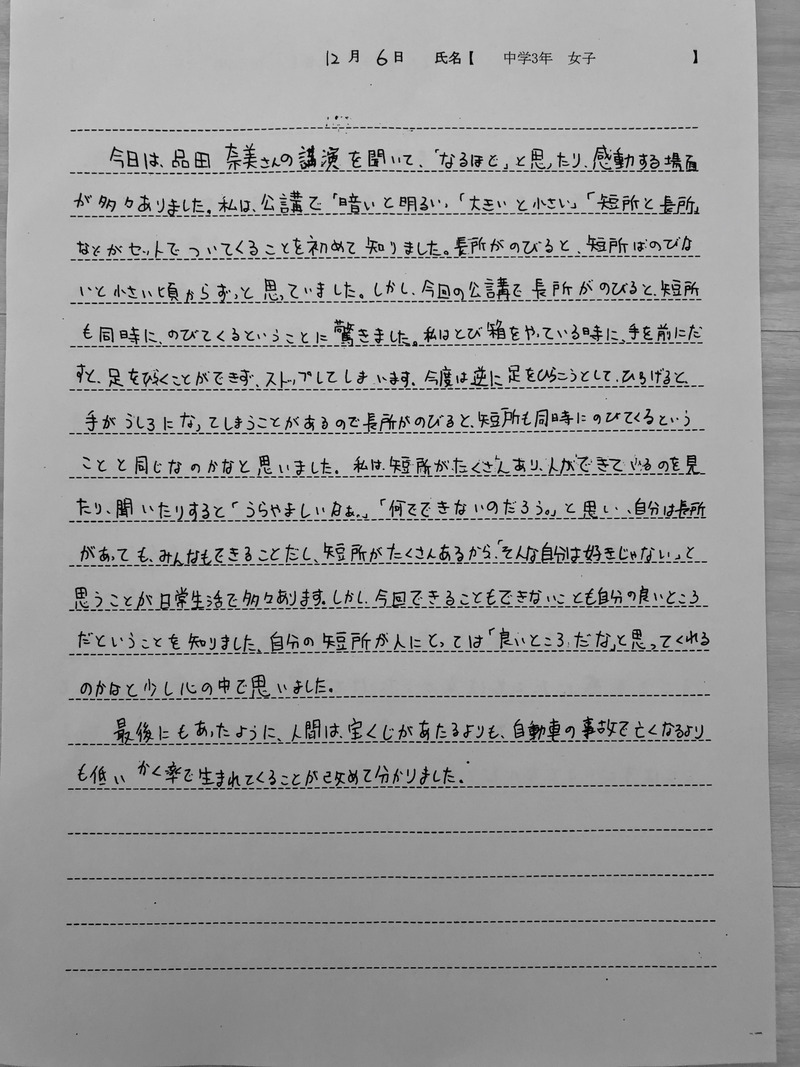 12月 6日 氏名【 中学3年 女子 】
今日は、品田 奈美さんの講演を聞いて、「なるほど」と思ったり、感動する場面
が多々ありました。私は、公講で「暗いと明るい」「大きいと小さい」「短所と長所」
などがセットでついてくることを初めて知りました。長所がのびると、短所はのびな
いと小さい頃からずっと思っていました。しかし、今回の公講で長所がのびると、短所
も同時に、のびてくるということに驚きました。私はとび箱をやっている時に、手を前にだ
すと、足をひらくことができず、ストップしてしまいます。今度は逆に足をひらこうとして、ひろげると、
手がうしろになってしまうことがあるので長所がのびると、短所も同時にのびてくるという
ことと同じなのかなと思いました。私は、短所が、たくさんあり、人ができているのを見
たり、聞いたりすると「うらやましいなぁ。」「何でできないのだろう。」と思い、自分は長所
があっても、みんなもできることだし、短所がたくさんあるから、「そんな自分は好きじゃない」と
思うことが日常生活で多々あります。しかし、今回できることもできないことも自分の良いところ
だということを知りました。自分の短所が人にとっては「良いところだな」と思ってくれる
のかなと少し心の中で思いました。
最後にもあったように、人間は、宝くじがあたるよりも、自動車の事故で亡くなるより
も低いかく率で生まれてくることが改めて分かりました。